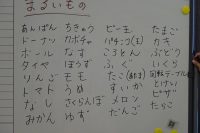 まるいもの
あんぱん ちきゅう ビー玉 たまご
ドーナツ カボチャ パチンコ(玉) カギ
ボール なす ころとん ぶどう
タイヤ ぼうず ふぐ いくら
りんご モモ たこ(頭) 回転テーブル
トマト うめ すいか とけい
なし さくらんぼ メロン ピザ
みかん ゆず だんご たらこ